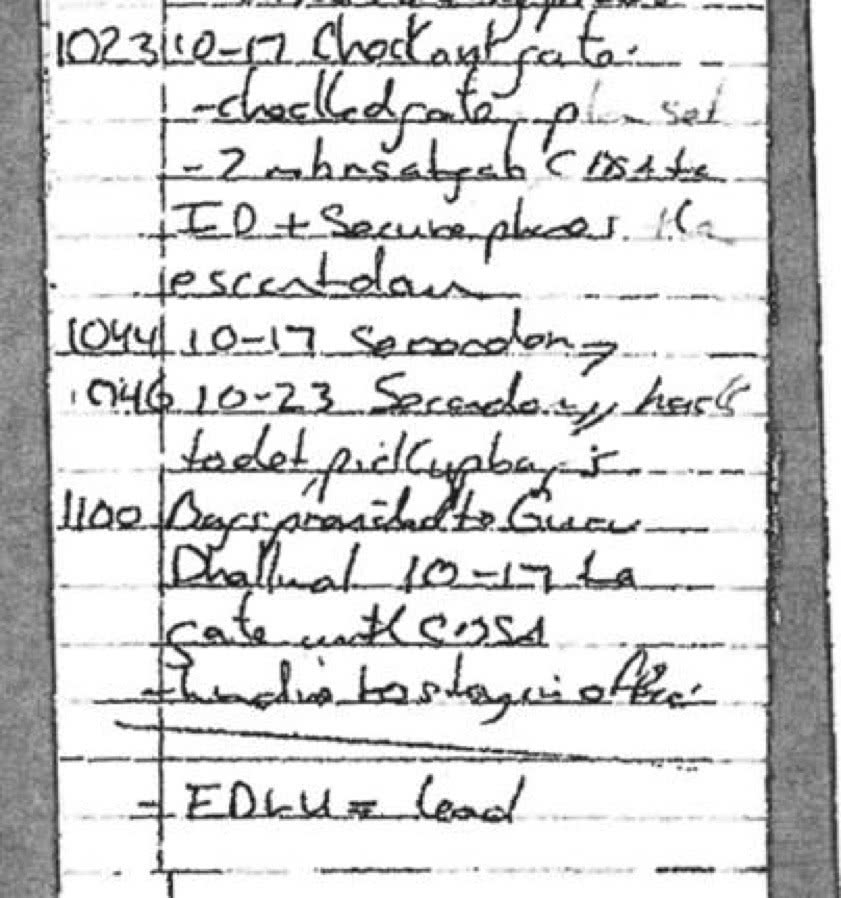 1023 10-17 Check out gate.
- checked gate, plan set
- 2 mbrs at gate CBSA to
ID + Secure phones. Ile
escort down
1044 10-17 Secondary
1046 10-23 Secondary, back
to det, pick up bags
1100 Bags provided to Guru
Dhallwal 10-17 to
gate with CBSA
- to stay in office.
- EDLU = lead